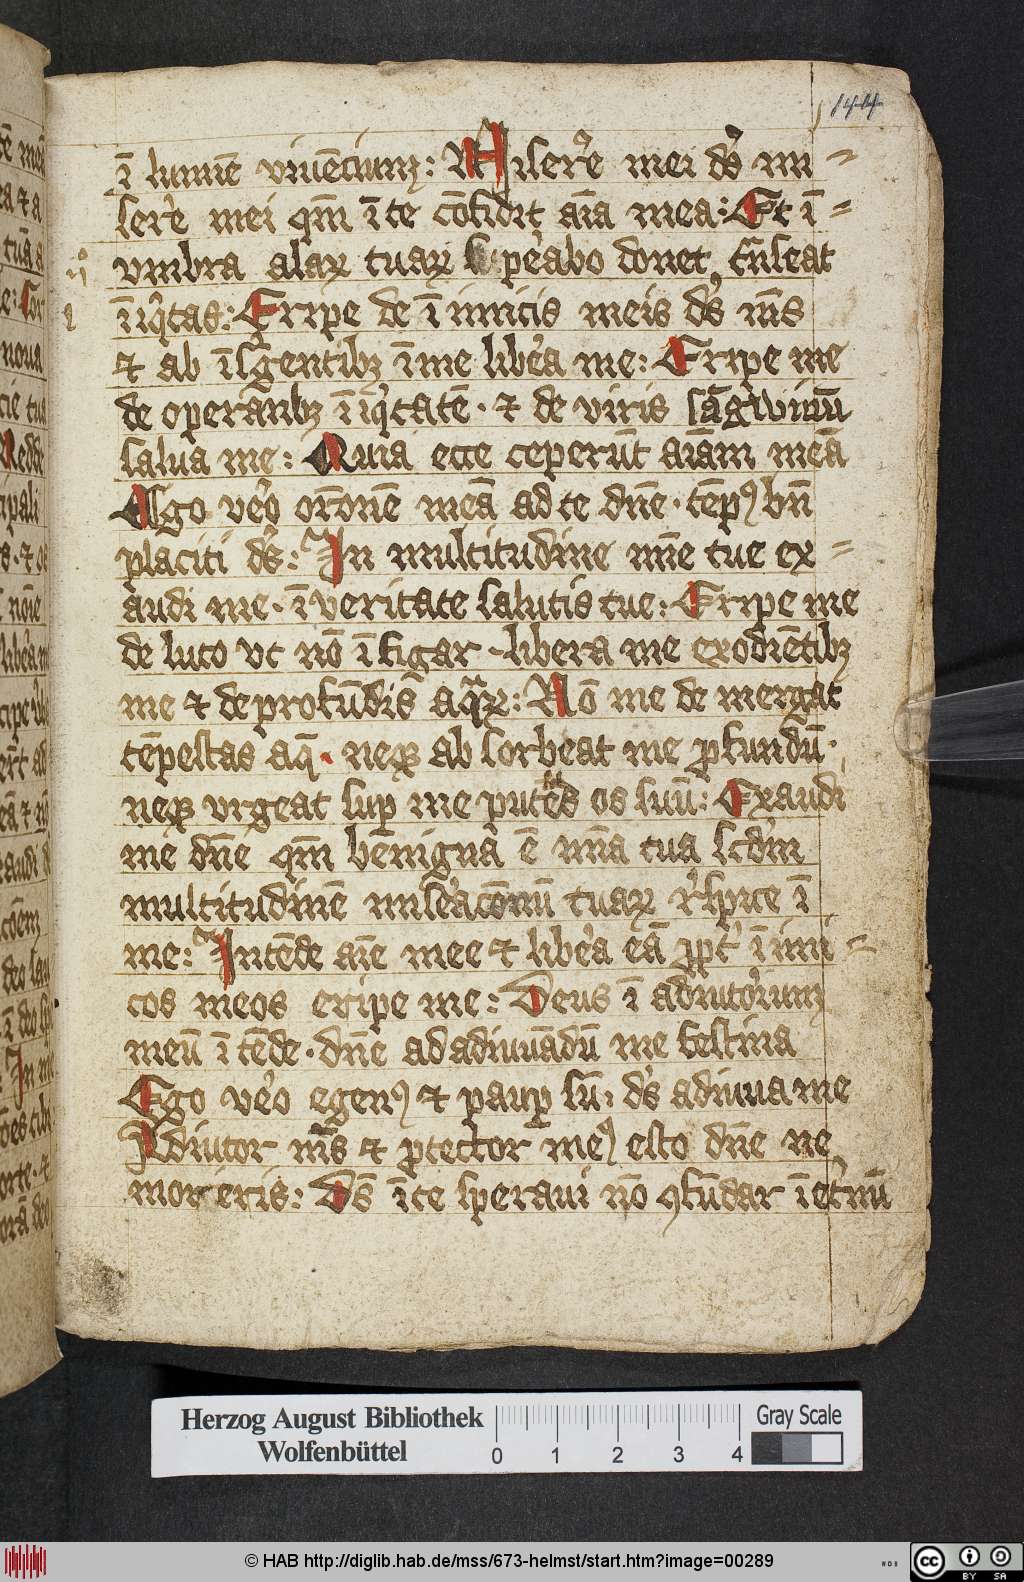 144
ī lumīe viuēcium: Misere mei ds mi
sere mei qm̄ ī te cōfidit aīa mea: Et ī
vmbra alaꝝ tuaꝝ sperabo donec trāseat
īiqͥtas: Eripe de īimicis meis ds ms
et ab īsͬgentibꝫ ī me libera me: Eripe me
de operātibꝫ īiqͥtatē · et de viris sāgwinū
salua me: Quia ecce ceperūt aīam meā
Ego vero oronē meā ad te dn̄e · tēpꝰ bn̄
placiti ds: In multitudine mīe tue ex
audi me · ī veritate salutis tue: Eripe me
de luto vt nō īfigar · libera me ex odiētibꝫ
me et de profūdis aqͣꝝ: Nō me demergat
tēpestas aq̄ · neqꝫ absorbeat me ꝓfundū ·
neqꝫ vrgeat suꝑ me puteus os suū: Exaudi
me dn̄e qm̄ benignā ē mīa tua scdm
multitudinē miseracōnū tuaꝝ respice ī
me: Intēde aīe mee et libera eā ꝓpt ī imi
cos meos eripe me: Deus ī adiutorium
meū ītēde · dn̄e ad adiuuādū me festina
Ego vero egenꝰ et pauꝑ sū: ds adiuua me
Adiutor ms et ꝓtector meꝰ esto dn̄e ne
moreris: Ds ī te speraui nō ꝯfūdar ī eternū
Herzog August Bibliothek
Wolfenbüttel
0 1 2 3 4
Gray Scale
© HAB http://diglib.hab.de/mss/673-helmst/start.htm?image=00289
WDB
cc BY SA